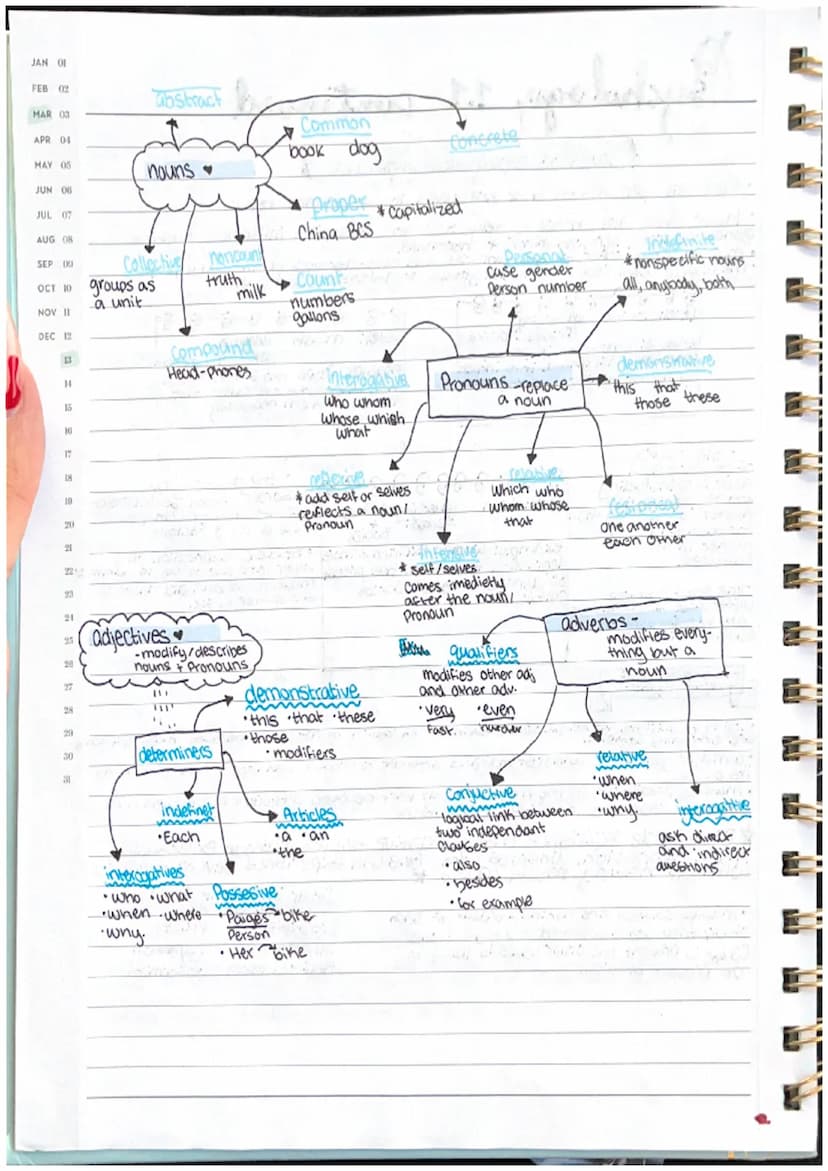 JAN 01
FEB 02
MAR 03
APR 04
MAY 05
JUN 06
JUL 07
AUG 08
SEP 09
OCT 10
NOV 11
DEC 12
13
14
15
16
17
18
19
20
21
22
23
24
25
26
27
28
29
30
31
nouns ♥
abstract
Common
book dog
Concrete
proper *capitalized
China BCS
Collective
groups as
a unit
noncount
truth
milk
Count
numbers
gallons
Compound
Head-phones
Pronouns -replace
a noun
Personal
case gender
person number
indefinite
*nonspecific nouns
all, anybody, both
demonstrative
this that
those these
interogative
who whom
whose which
what
reflexive
*add self or selves
reflects a noun/
pronoun
intensive
* self/selves
comes imedietly
after the noun/
Pronoun
relative
which who
whom whose
that
reciprocal
one another
each other
adjectives ♥
•modify/describes
nouns + Pronouns
determiners
demonstrative
•this •that •these
•those
•modifiers
indefinet
•Each
Articles
•a •an
•the
interogatives
•who •what
•when •where
•why.
Possesive
•Paiges bike
Person
•Her bike
adverbs-
modifies every-
thing but a
noun
qualifiers
modifies other adj
and other adv.
•very •even
fast
Conjuctive
•logical link between
two independant
clauses
•also
•besides
•for example
relative
•when
•where
•why.
interogitive
ask direct
and indirect
questions